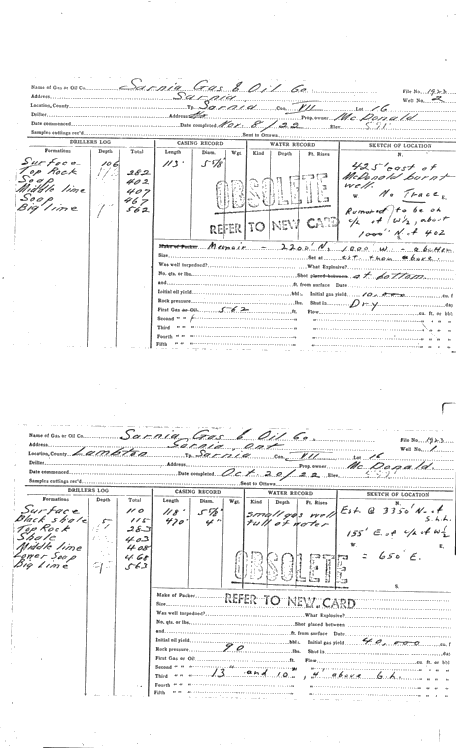 Name of Gas or Oil Co. Sarnia Gas & Oil Co. File No. 1923
Address Sarnia Well No. 2
Location, County Tp. Sarnia Con. VII Lot 16
Driller Address Prop. owner McDonald
Date commenced Date completed Nov. 8/22 Elev. 591
Samples cuttings rec'd. Sent to Ottawa
DRILLERS LOG CASING RECORD WATER RECORD SKETCH OF LOCATION
Formations Depth Total Length Diam. Wgt. Kind Depth Ft. Rises N.
Surface 106 113' 5⅝"
Top Rock 282
Soap 402
Middle lime 407
Soap 467
Big lime 562
425' east of
McDonald burnt
well.
W. No Trace E.
Rumored to be on
c/L of W½, about
1000' N. of 402
OBSOLETE
REFER TO NEW CARD
Make of Packer Memoir - 2200' N, 1000 W - a button
Size Set at
Was well torpedoed? What Explosive?
No. qts. or lbs. Shot placed between at bottom
and ft. from surface Date
Initial oil yield bbl. Initial gas yield 10,000 cu. f
Rock pressure lbs. Shut in Dry
First Gas or Oil 562 ft. Flow cu. ft. or bbl
Second " "
Third " "
Fourth " "
Fifth " "
Name of Gas or Oil Co. Sarnia Gas & Oil Co. File No. 1923
Address Sarnia Ont Well No. 1
Location, County Lambton Tp. Sarnia Con. VII Lot 16
Driller Address Prop. owner McDonald
Date commenced Date completed Oct. 20/22 Elev.
Samples cuttings rec'd. Sent to Ottawa
DRILLERS LOG CASING RECORD WATER RECORD SKETCH OF LOCATION
Formations Depth Total Length Diam. Wgt. Kind Depth Ft. Rises N.
Surface 110 118' 5⅝"
Black shale 5 115 470' 4"
Top Rock 283
Shale 403
Middle lime 408
Lower Soap 468
Big lime 563
Small gas well
full of water
Est @ 3350' N. of
S.h.h.
155' E. of c/L of W½
W. E.
= 650' E.
S.
OBSOLETE
REFER TO NEW CARD
Make of Packer
Size Set at
Was well torpedoed? What Explosive?
No. qts. or lbs. Shot placed between
and ft. from surface Date
Initial oil yield bbl. Initial gas yield 40,000 cu. f
Rock pressure 90 lbs. Shut in
First Gas or Oil ft. Flow cu. ft. or bbl
Second " "
Third " " 13" and 10", 4 above 6.h.
Fourth " "
Fifth " "